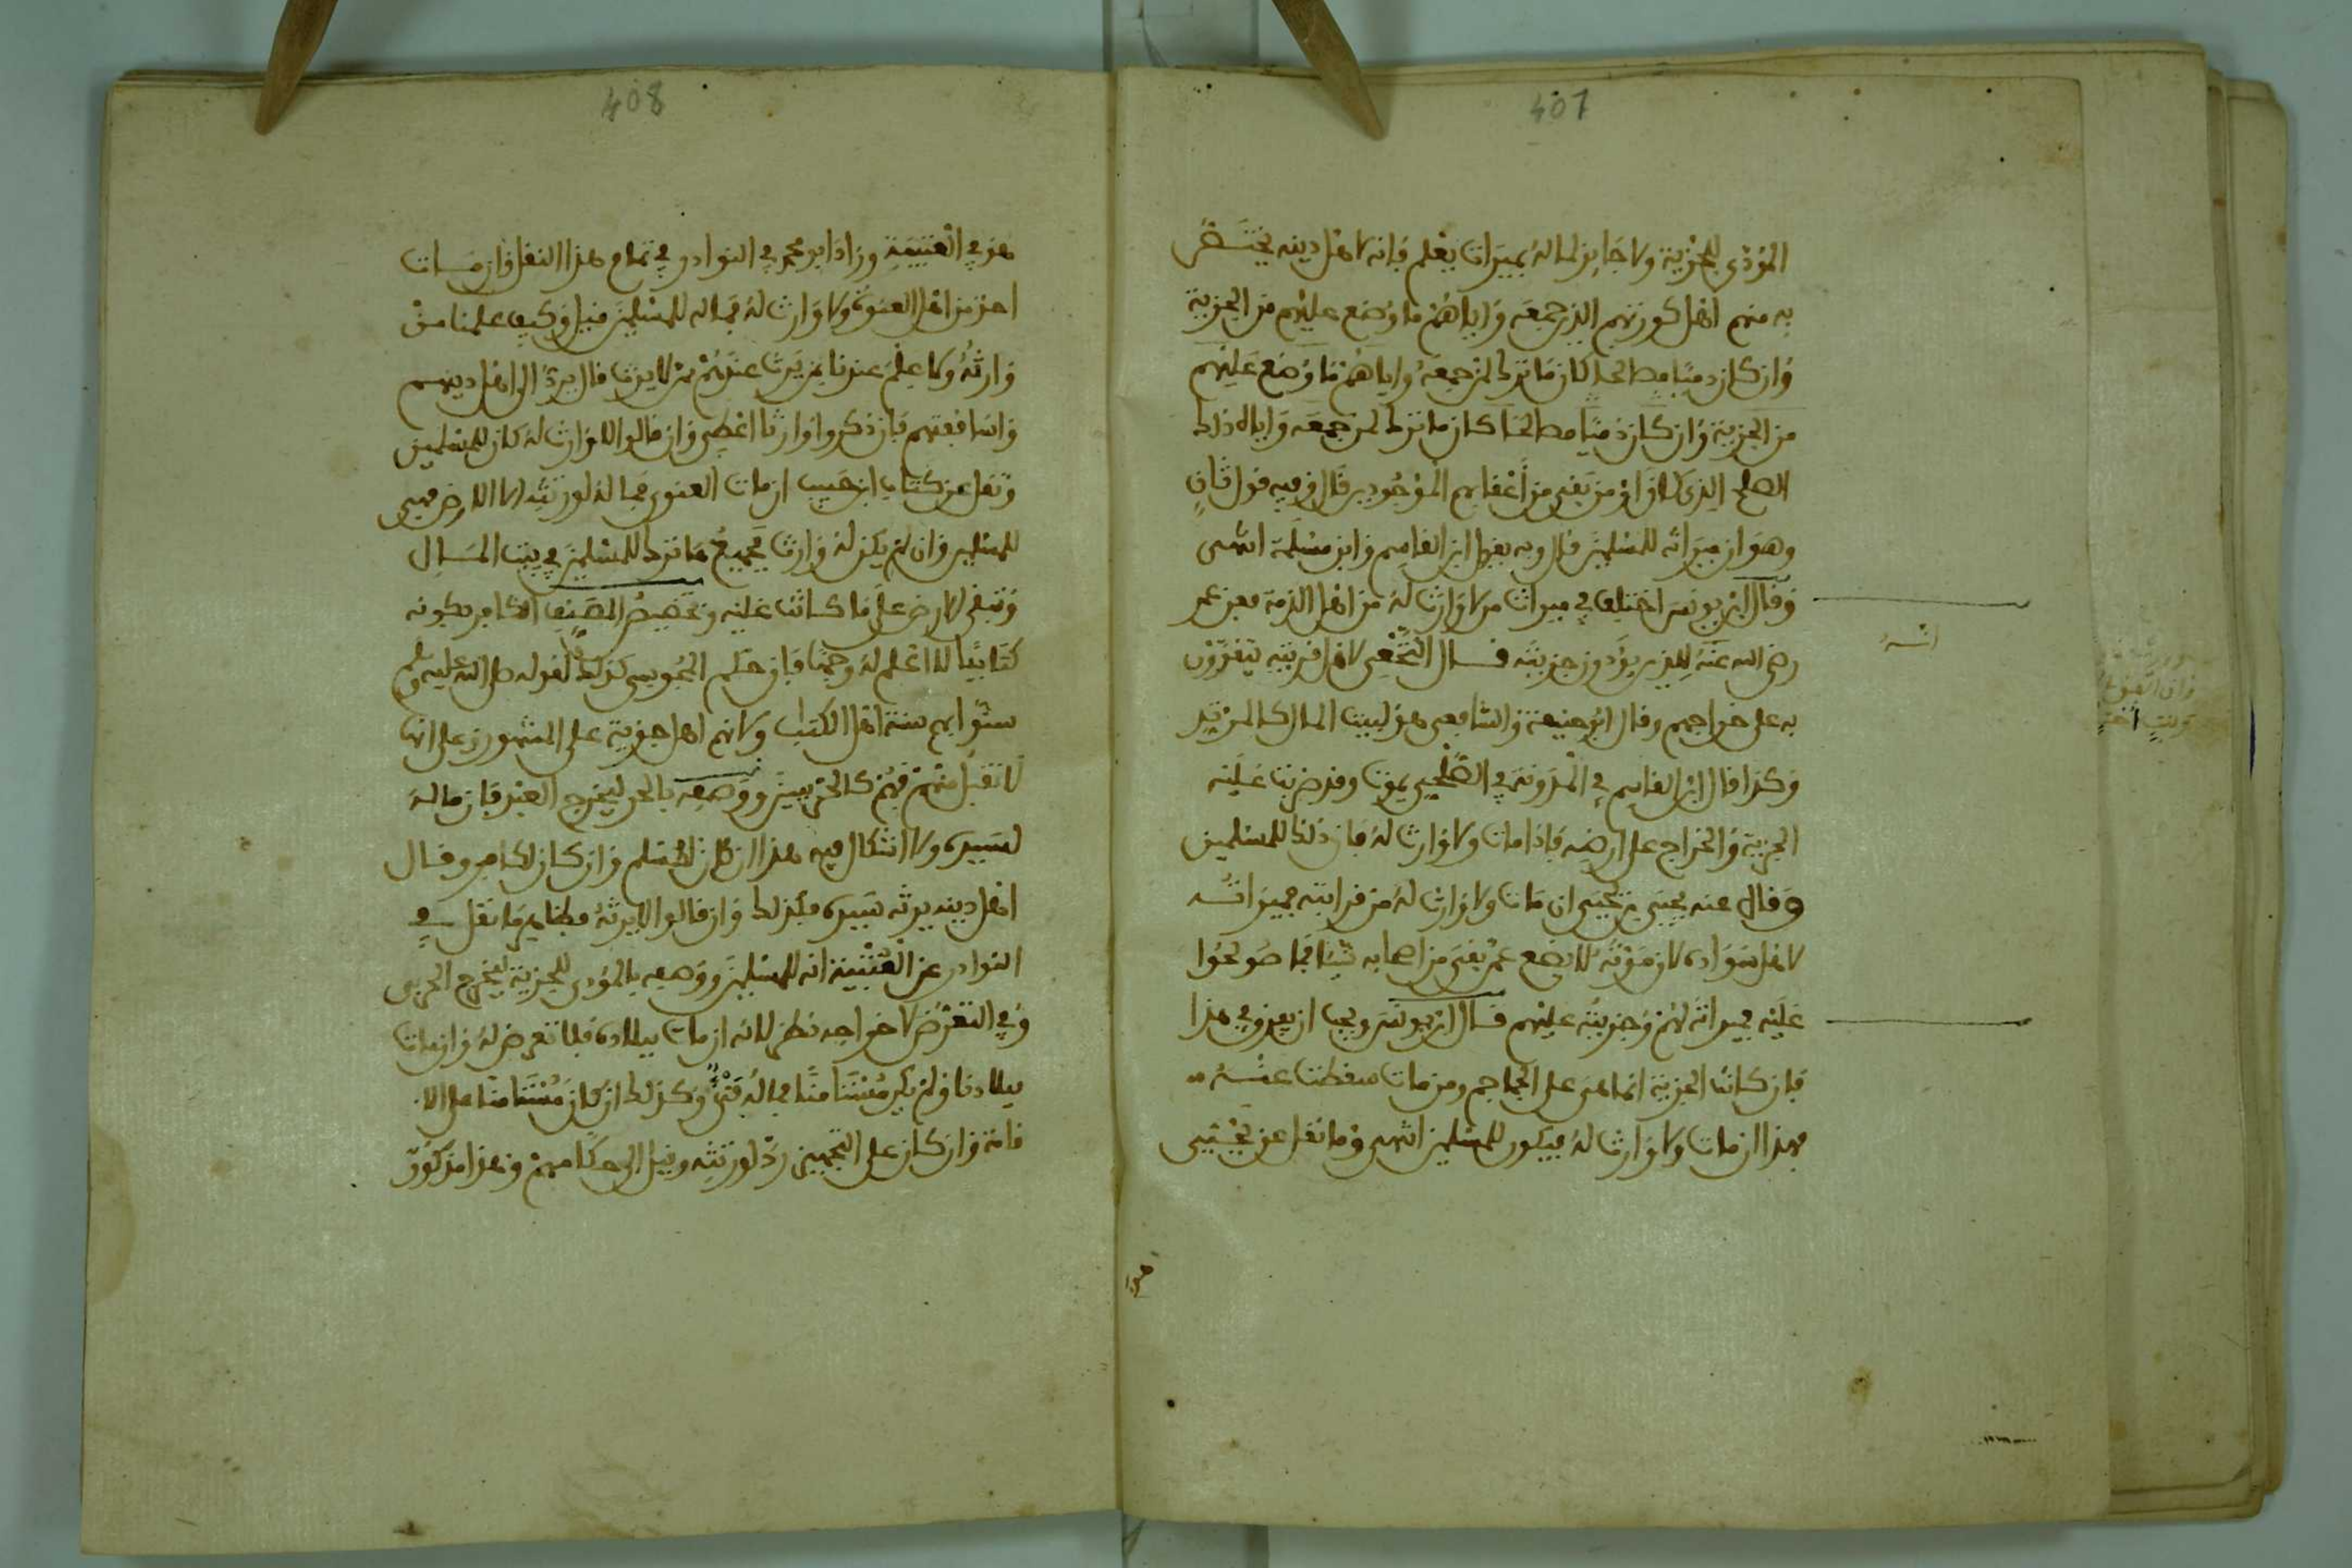 407
المؤدي للجزية ولا حايز لماله بميراث يعلم فإنه لاهل دينه يختص
به منهم اهل كورتهم الذين جمعه واياهم ما وضع عليهم من الجزية
وان كان ذميا مصالحا كان ما ترك لمن جمعه واياهم ما وضع عليهم
من الجزية وان كان ذميا مصالحا كان ما ترك لمن جمعه واياه ذلك
الصلح الذي من بقي من أعقابهم الموجودين قال وفيه قول ثان
وهو ان ميراثه للمسلمين قال وبه يقول ابن القاسم وابن مسلمة انتهى
وقال ابن يونس اختلف في ميراث من لا وارث له من اهل الذمة فعن عمر
رضي الله عنه للذين يؤدون جزيته قال النخعي لاهل قريته يتقوون
به على خراجهم وقال ابو حنيفة والشافعي هو لبيت المال كالمرتد
وكذا قال ابن القاسم في المدونة في الصلحي يموت وقد ضربت عليه
الجزية والخراج على ارضه فاذا مات ولا وارث له فان ذلك للمسلمين
وقال عنه يحيى بن يحيى ان مات ولا وارث له من قرابته فميراثه
لاهل سواده لان موته لا يضع عمن بقي من اصحابه شيئا مما صولحوا
عليه فميراثه لهم وجزيته عليهم قال ابن يونس ويجب ان يعزو في هذا
فان كانت الجزية انما هي على الجماجم ومن مات سقطت عنه
فهذا ان مات ولا وارث له فيكون للمسلمين انتهى وما نقل عن يحيى
408
هو في العتبية وزاد ابو محمد في النوادر في تمام هذا النقل وان مات
احد من اهل العنوة ولا وارث له فماله للمسلمين قيل وكيف علمنا من
وارثه ولا علم عندنا بمن يرث عندهم ممن لا يرث قال يرد الى اهل دينهم
واساقفتهم فان ذكروا وارثا اعطي وان قالوا لا وارث له كان للمسلمين
ونقل عن كتاب ابن حبيب ان مات العنوي فماله لورثته الا الارض فهي
للمسلمين وان لم يكن له وارث فجميع ما ترك للمسلمين في بيت المال
وتبقى الارض على ما كانت عليه وتخصيص المصنف الكافر بكونه
كتابيا لا اعلم له وجها فان حكم المجوسي كذلك لقوله صلى الله عليه وسلم
سنوا بهم سنة اهل الكتاب ولانهم اهل جزية على المشهور وعلى انها
لا تقبل منهم فهم كالحربيين ووصفه بالحر ليخرج العبد فان ماله
لسيده ولا اشكال فيه هذا ان كان لمسلم وان كان لكافر وقال
اهل دينه يرثه سيده فكذلك وان قالوا لا يرثه فظاهر ما نقل في
النوادر عن العتبية انه للمسلمين ووصفه بالمؤدي للجزية ليخرج الحربي
وفي التعرض لاخراجه نظر لانه ان مات ببلاده فلا تعرض له وان مات
ببلادنا ولم يكن مستأمنا فماله فيء وكذلك ان كان مستأمنا على الا
قامة وان كان على التجهيز رد لورثته وقيل الى حكامهم وهذا مذكور